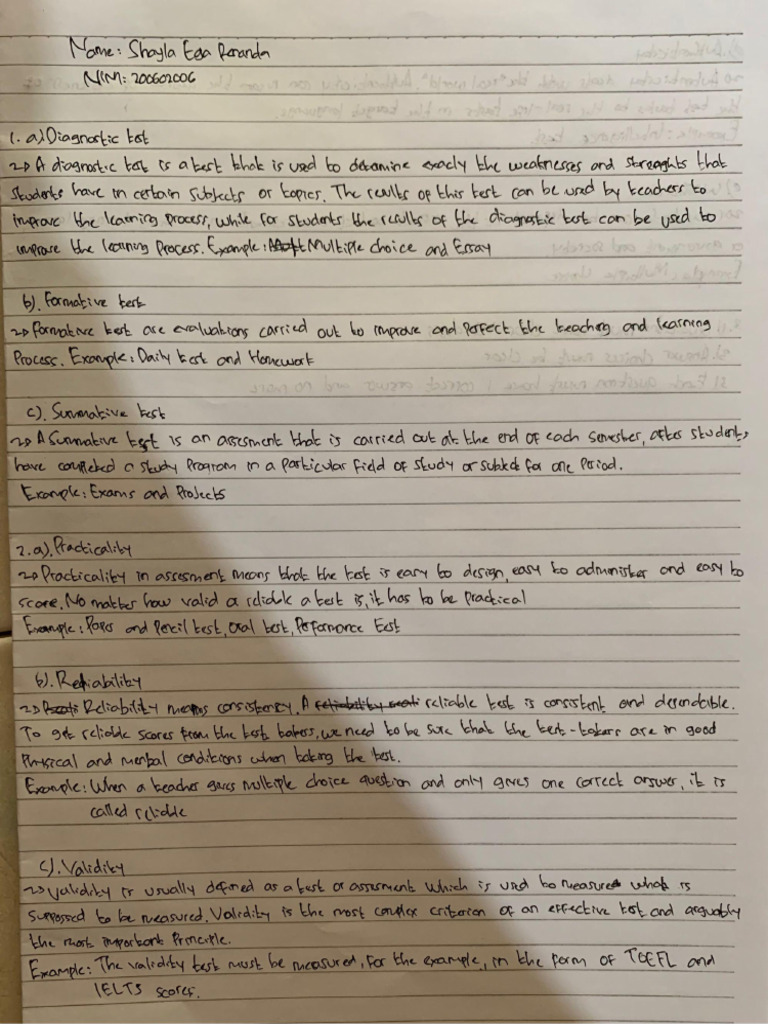 Name: Shayla Ega Rananda
NIM: 200602006
1. a) Diagnostic test
A diagnostic test is a test that is used to detamine exacly the weaknesses and strenghts that
students have in certain subjects or topics. The results of this test can be used by teachers to
improve the learning process, while for students the results of the diagnostic test can be used to
improve the learning process. Example: Multiple choice and Essay
b). Formative test
Formative test are evaluations carried out to improve and perfect the teaching and learning
Process. Example: Daily test and Homework
c). Summative test
A Summative test is an assesment that is carried out at the end of each semester, after students
have completed a study program in a particular field of study or subject for one Period.
Example: Exams and Projects
2. a). Practicality
Practicality in assesment means that the test is easy to design, easy to administer and easy to
score. No matter how valid or reliable a test is, it has to be practical
Example: Paper and Pencil test, Oral test, Performance test
b). Reliability
Reliability means consistency. A reliable test is consistent and dependible.
To get reliable scores from the test takers, we need to be sure that the test-takers are in good
Physical and mental conditions when taking the test.
Example: When a teacher gives multiple choice question and only gives one correct answer, it is
called reliable
c). Validity
Validity is usually defined as a test or assesment which is used to measure what is
supposed to be measured. Validity is the most complex criterion of an effective test and arguably
the most important Principle.
Example: The validity test must be measured, for the example, in the form of TOEFL and
IELTS scores.